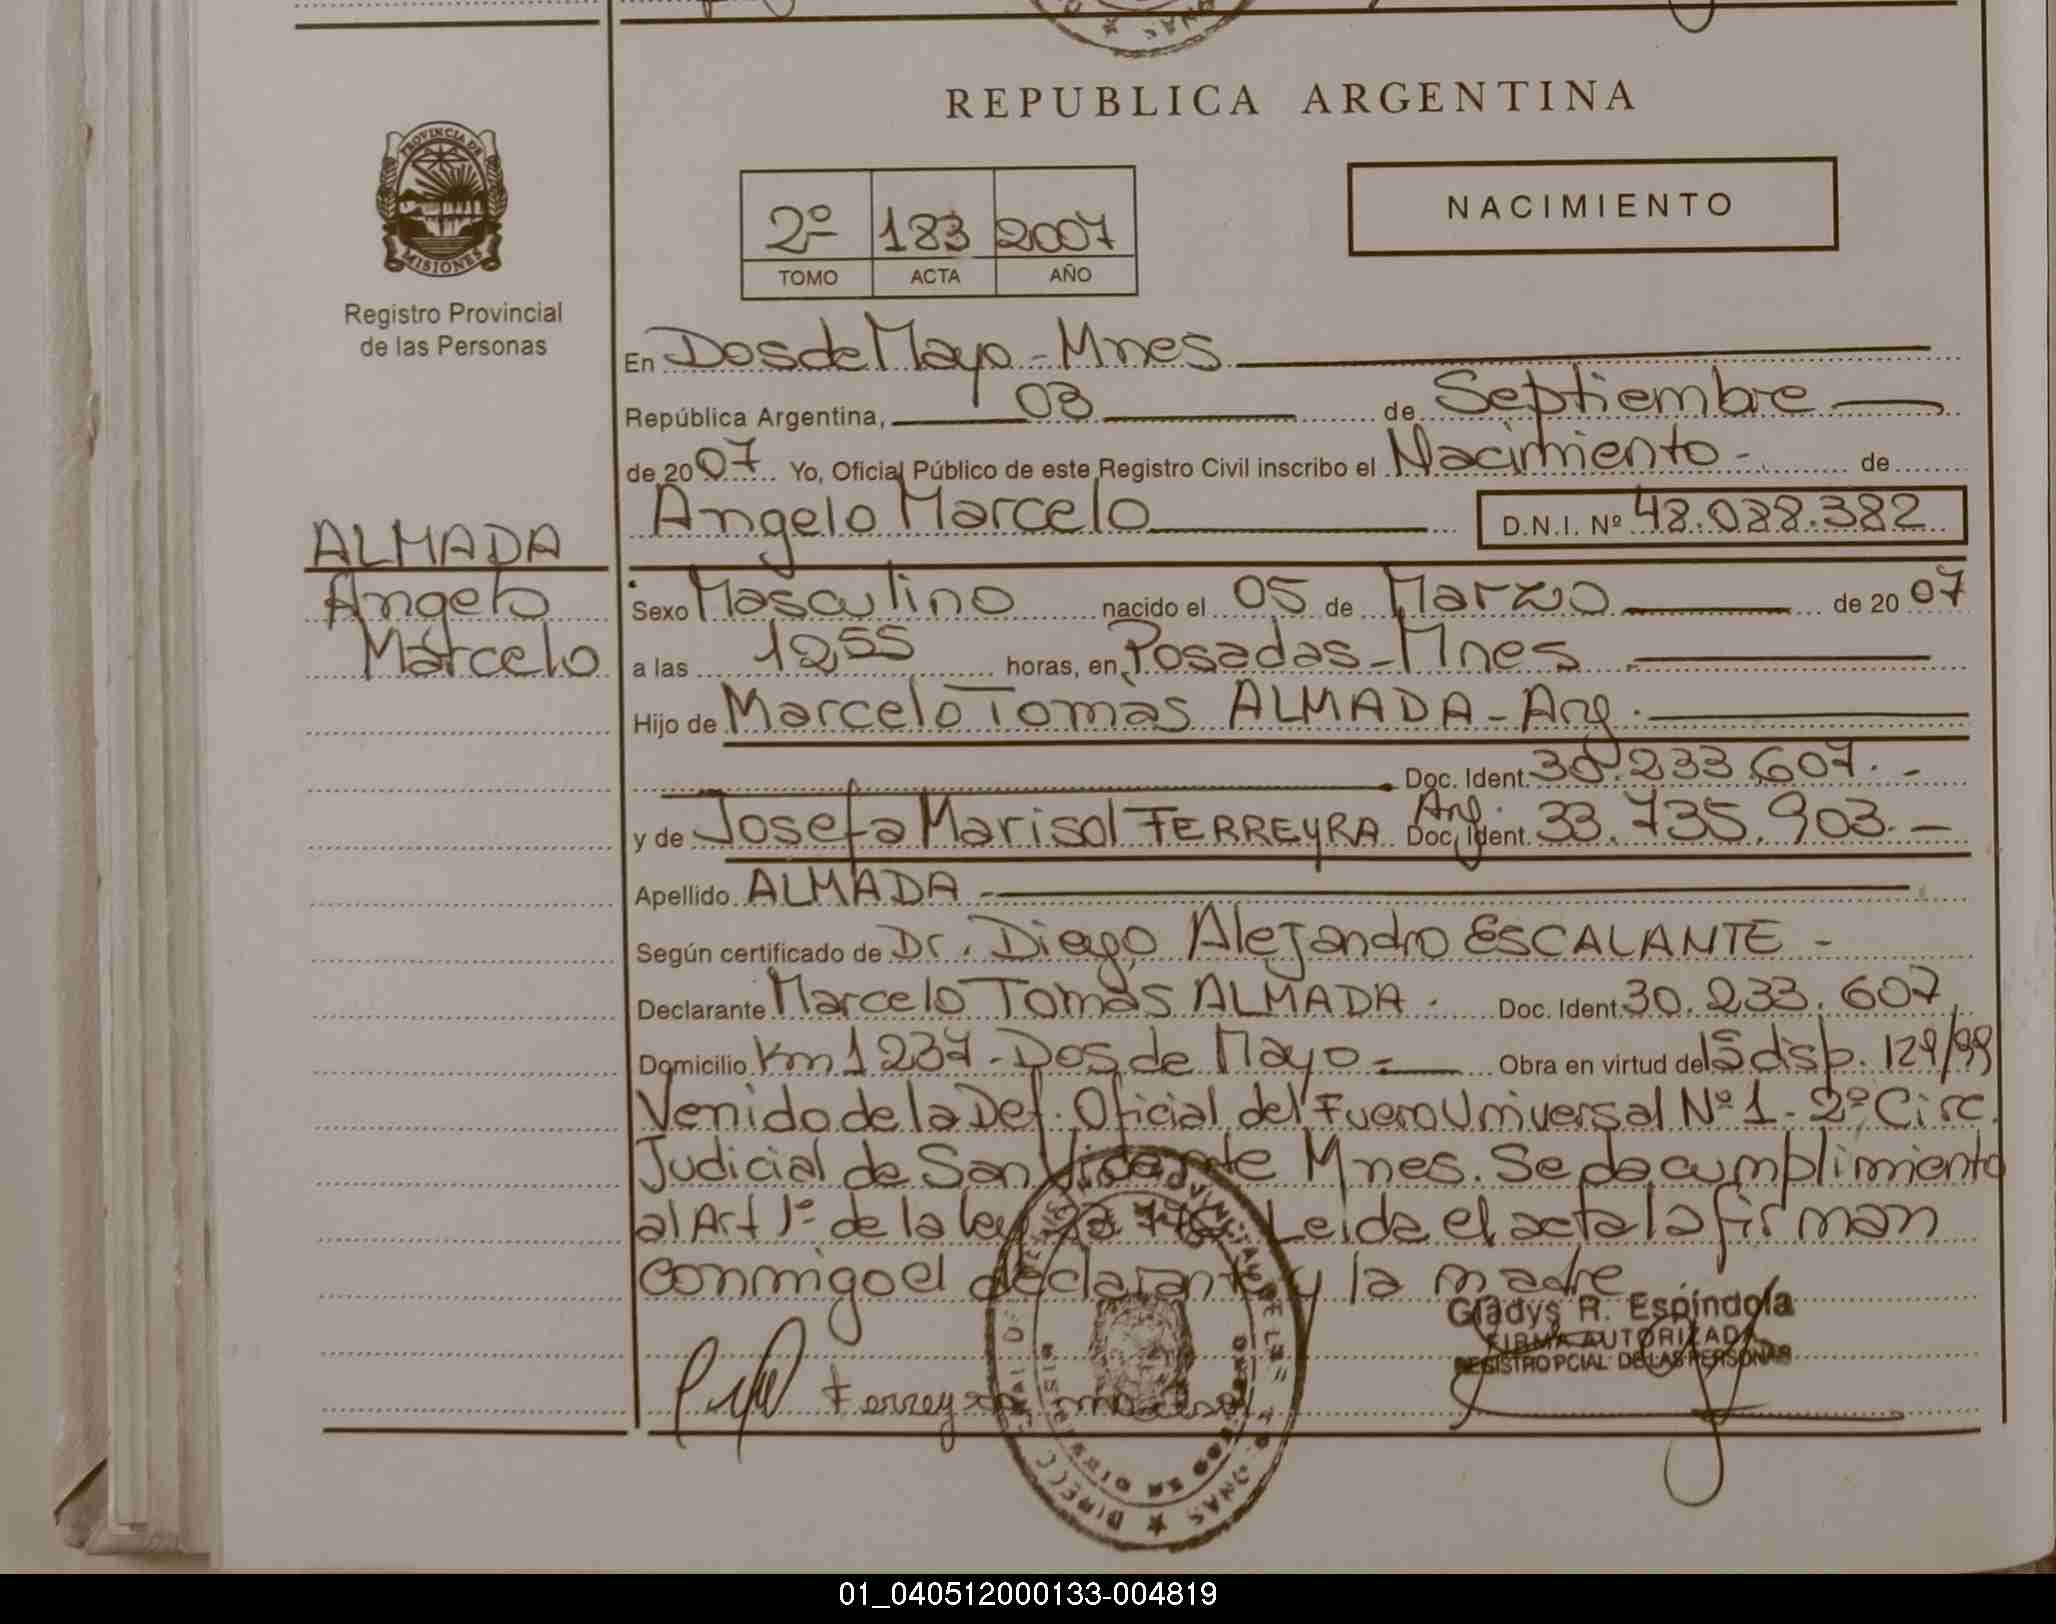 REPUBLICA ARGENTINA
PROVINCIA DE
MISIONES
Registro Provincial
de las Personas
NACIMIENTO
2º 183 2007
TOMO ACTA AÑO
En Dos de Mayo - Mnes
República Argentina, 03 de Septiembre
de 2007 Yo, Oficial Público de este Registro Civil inscribo el Nacimiento - de
Angelo Marcelo D.N.I. Nº 48.028.382
ALMADA
Angelo
Marcelo
Sexo Masculino nacido el 05 de Marzo de 2007
a las 1255 horas, en Posadas - Mnes
Hijo de Marcelo Tomás ALMADA - Arg.
Doc. Ident. 30.233.607.-
y de Josefa Marisol FERREYRA Arg. Doc. Ident. 33.735.903.-
Apellido ALMADA -
Según certificado de Dr. Diego Alejandro ESCALANTE -
Declarante Marcelo Tomás ALMADA. Doc. Ident. 30.233.607
Domicilio Km 1237 - Dos de Mayo - Obra en virtud de disp. 129/99
Venido de la Def. Oficial del Fuero Universal Nº 1 - 2º Circ.
Judicial de San Vicente Mnes. Se da cumplimiento
al Art 1º de la ley Leida el acta la firman
conmigo el declarante y la madre
Gladys R. Espíndola
FIRMA AUTORIZADA
REGISTRO PCIAL DE LAS PERSONAS
Ferreyra
01_040512000133-004819